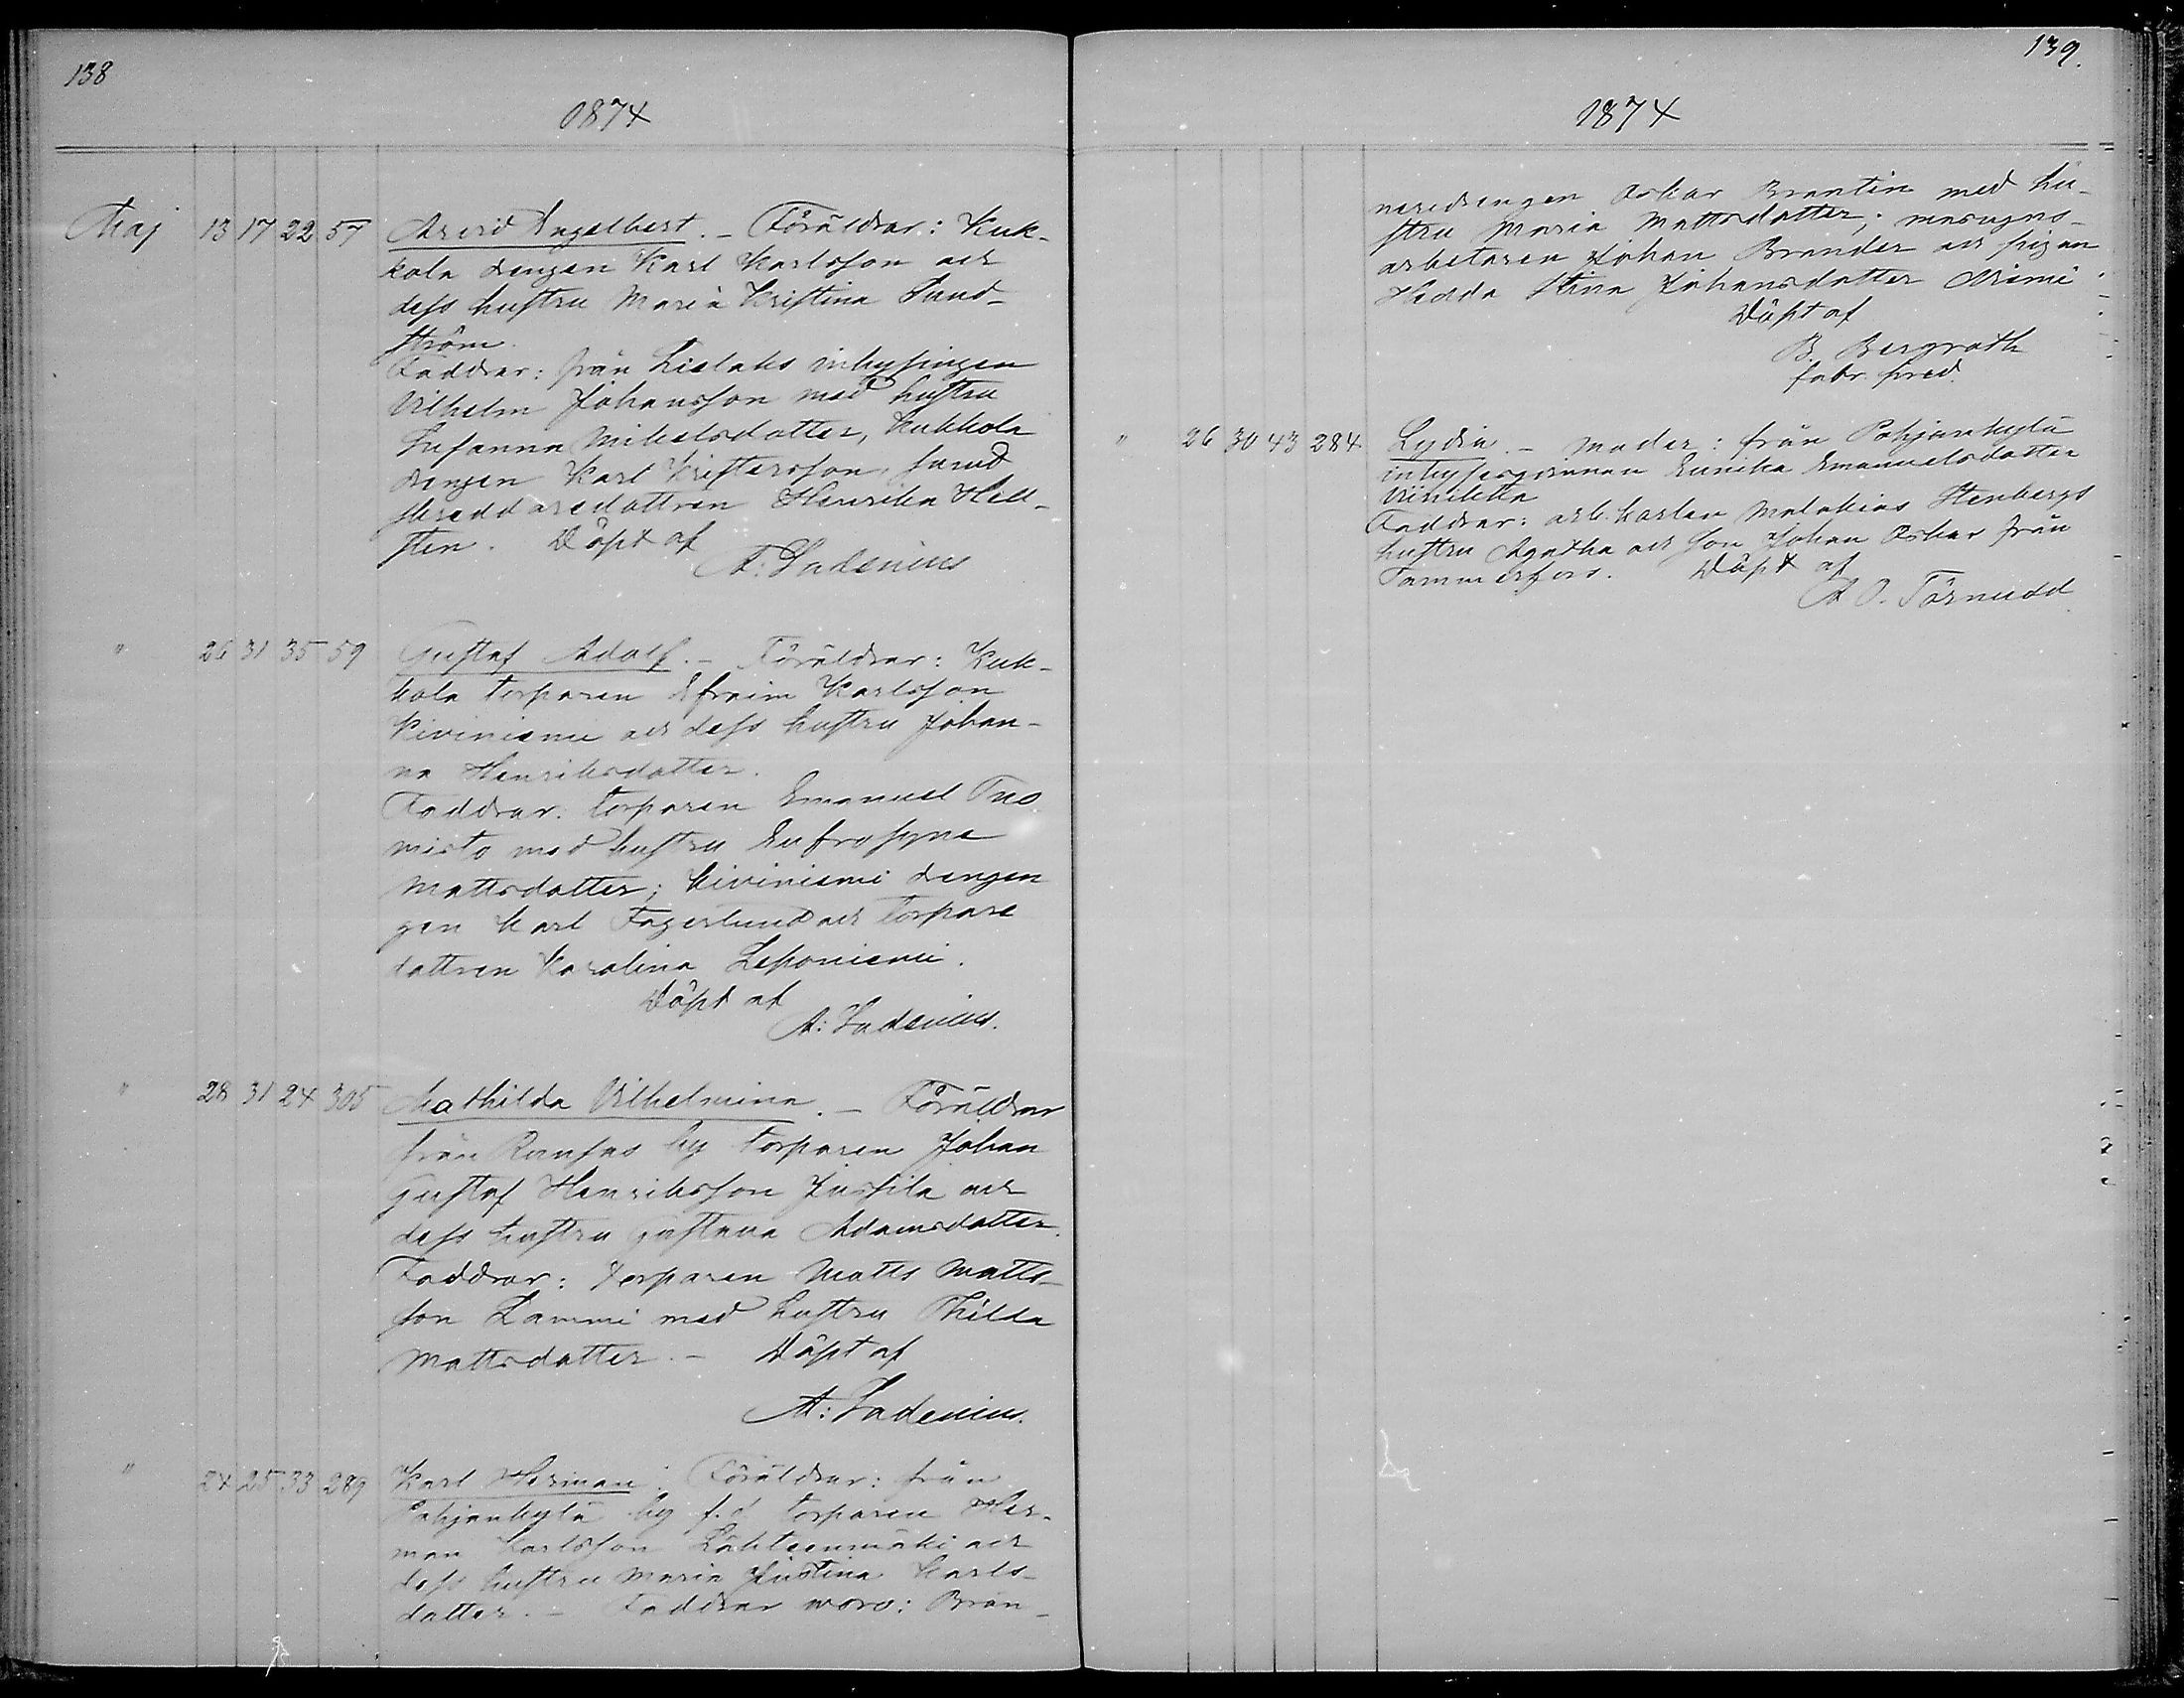 138
1874
Maj 13 17 22 57 Arvid Engelbert. - Föräldrar: Kuk-
kola drengen Karl Karlsson och
dess hustru Maria Kristina Sund-
ström.
Faddrar: från Lielaks inhysingen
Vilhelm Johansson med hustru
Susanna Mikelsdotter, Kukkola
drengen Karl Kristersson, samt
skreddaredottren Henrika Hell-
sten. Döpt af
A: Ladenius
" 26 31 35 59 Gustaf Adolf. - Föräldrar: Kuk-
kola torparen Efraim Karlsson
Kiviniemi och dess hustru Johan-
na Henriksdotter.
Faddrar: torparen Emanuel Tuo
misto med hustru Eufrosyne
Mattsdotter; Kiviniemi drengen
gen Karl Fagerlund och torpare
dottren Karolina Leponiemi.
Döpt af
A: Ladenius.
" 28 31 24 305 Mathilda Vilhelmina. - Föräldrar
från Ransas by torparen Johan
Gustaf Henriksson Jussila och
dess hustru Gustava Adamsdotter.
Faddrar: torparen Matts Matts-
son Lammi med hustru Thilda
Mattsdotter. - Döpt af
A: Ladenius.
" 24 25 33 289 Karl Herman. Föräldrar: från
Pohjankylä by f.d torparen Her-
man Karlsson Lähteenmäki och
dess hustru Maria Justina Karls-
dotter. - Faddrar woro: Brän-
139.
1874
neridrengen Oskar Brantin med hu-
stru Maria Mattsdotter; masugns-
arbetaren Johan Brander och pigan
Hedda Stina Johansdotter
Döpt af
B. Bergroth
fabr. pred.
" 26 30 43 284 Lydia. - Moder: från Pohjankylä
inhysesqvinnan Eunika Emanuelsdotter
Viinikka
Faddrar: arb. karlen Malakias Stenbergs
hustru Agatha och son Johan Oskar från
Tammerfors. Döpt af
A O. Törnudd